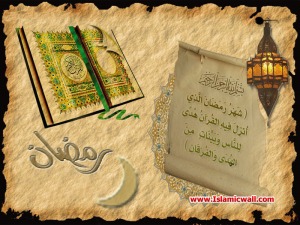 بسم الله الرحمن الرحيم
( شَهْرُ رَمَضَانَ الَّذِي
أُنزِلَ فِيهِ الْقُرْآنُ هُدًى
لِّلنَّاسِ وَبَيِّنَاتٍ مِّنَ
الْهُدَى وَالْفُرْقَانِ )
رمضان
www.Islamicwall.com